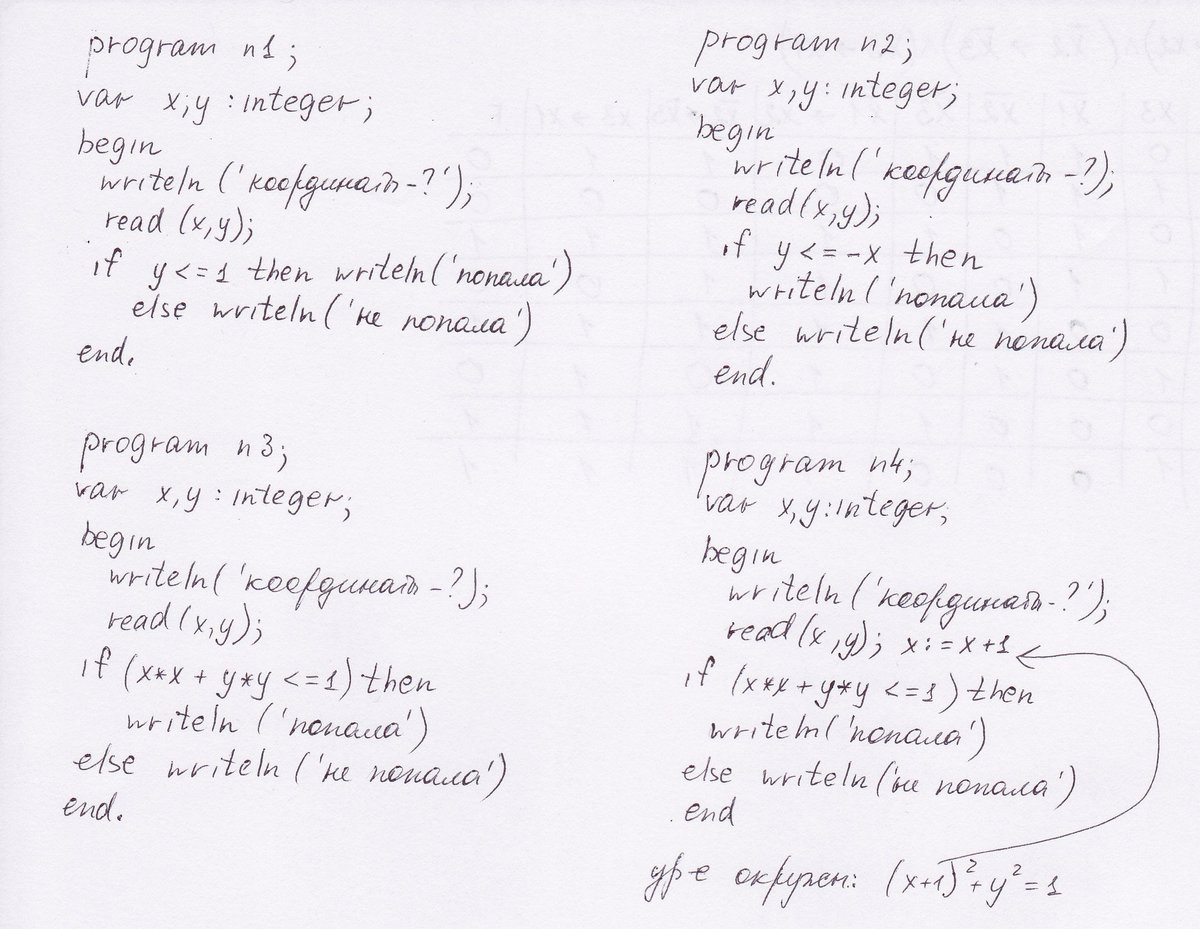 program n1;
var x,y : integer;
begin
writeln ('координаты-?');
read (x,y);
if y <= 1 then writeln('попала')
else writeln('не попала')
end.
program n2;
var x,y: integer;
begin
writeln('координаты-?);
read(x,y);
if y <= -x then
writeln('попала')
else writeln('не попала')
end.
program n3;
var x,y : integer;
begin
writeln('координаты-?);
read(x,y);
if (x*x + y*y <=1) then
writeln ('попала')
else writeln ('не попала')
end.
program n4;
var x,y:integer;
begin
writeln('координаты-?');
read(x,y); x:=x+1
if (x*x+y*y <=1) then
writeln('попала')
else writeln('не попала')
end
ур-е окружн: (x+1)²+y²=1